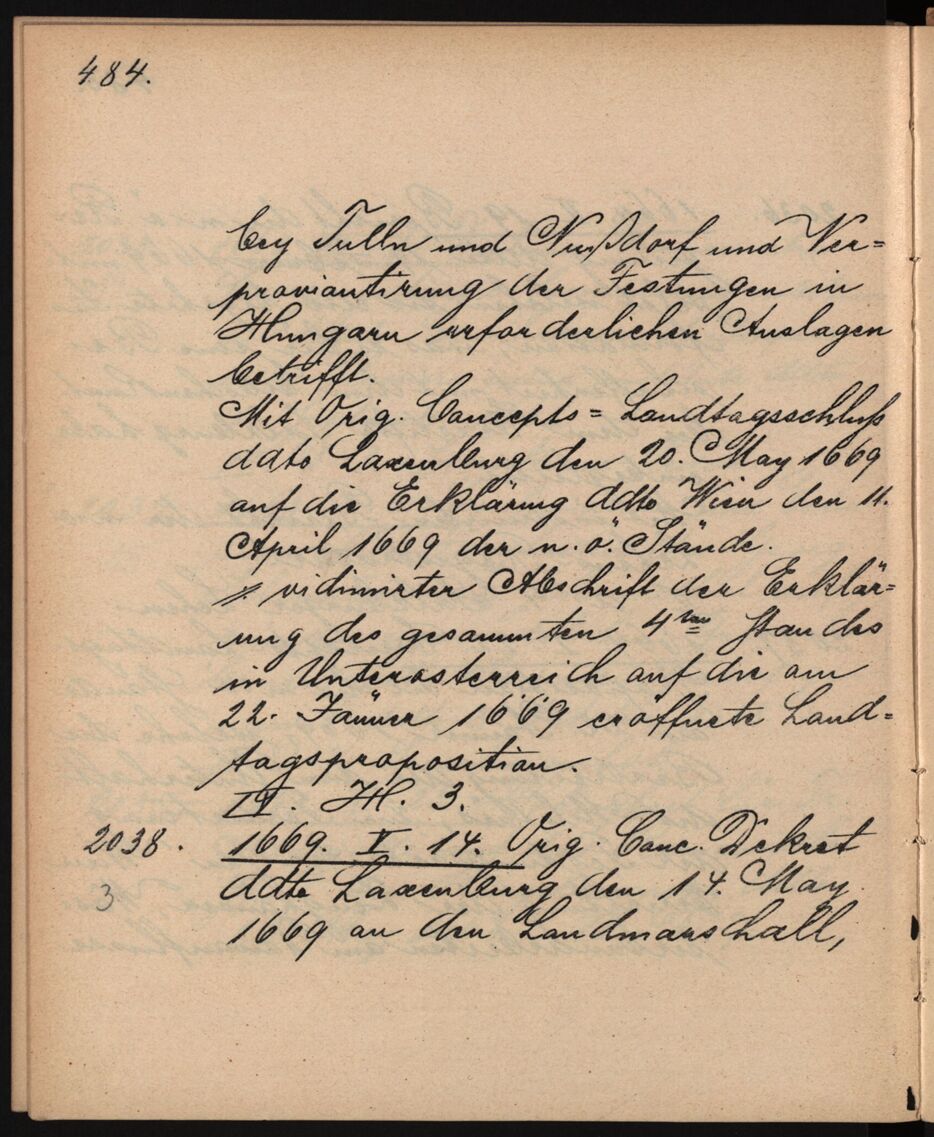 484.
bey Tulln und Nußdorf und Ver=
proviantirung der Festungen in
Hungarn erforderlichen Auslagen
betrifft.
Mit Orig. Concepts = Landtagsschluß
ddto Laxenburg den 20. May 1669
auf die Erklärung ddto Wien den 11.
April 1669 der n. ö. Stände.
vidimirter Abschrift der Erklär=
ung des gesammten 4ten Standes
in Unterosterreich auf die am
22. Jänner 1669 eröffnete Land=
tagsproposition.
IV. H. 3.
2038. 1669. V. 14. Orig. Conc. Dekret
ddto Laxenburg den 14. May
3
1669 an den Landmarschall,